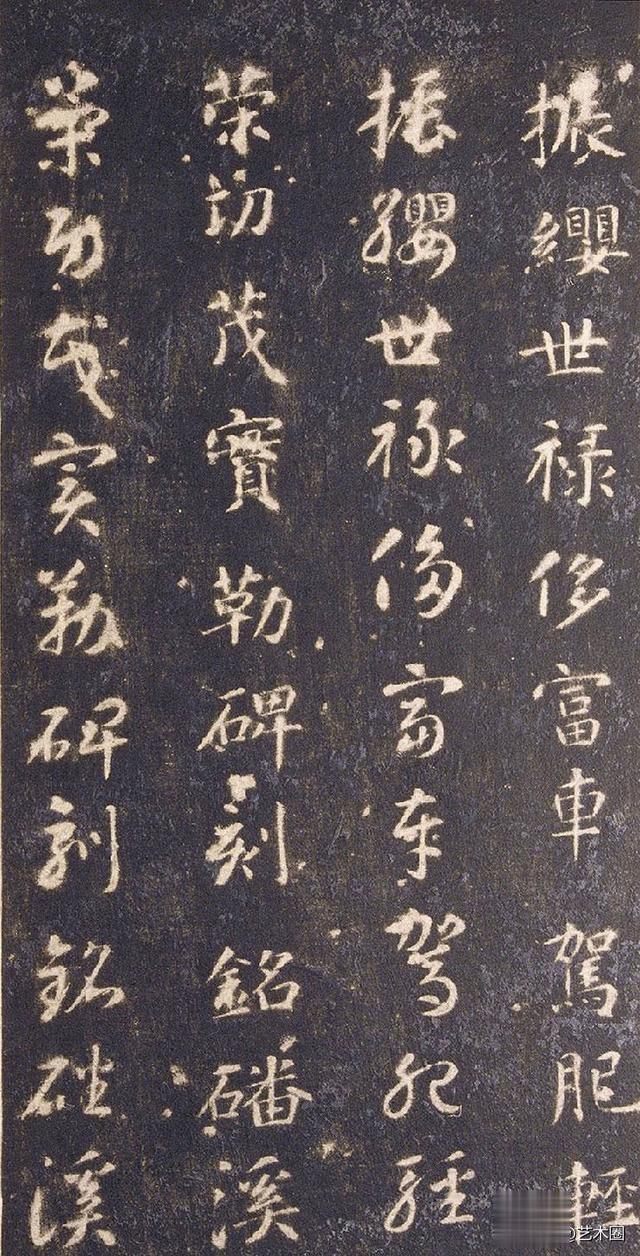 振纓世祿侈富車駕肥輕
振纓世祿侈富車駕肥輕
策功茂實勒碑刻銘磻溪
策功茂實勒碑刻銘磻溪
艺术圈